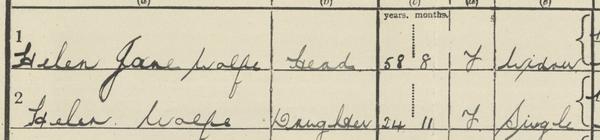 (a) (b) (c) (d) (e)
years. months.
1
Helen Jane Wolfe Head 58 8 F Widow
2
Helen. Wolfe Daughter 24 11 F Single